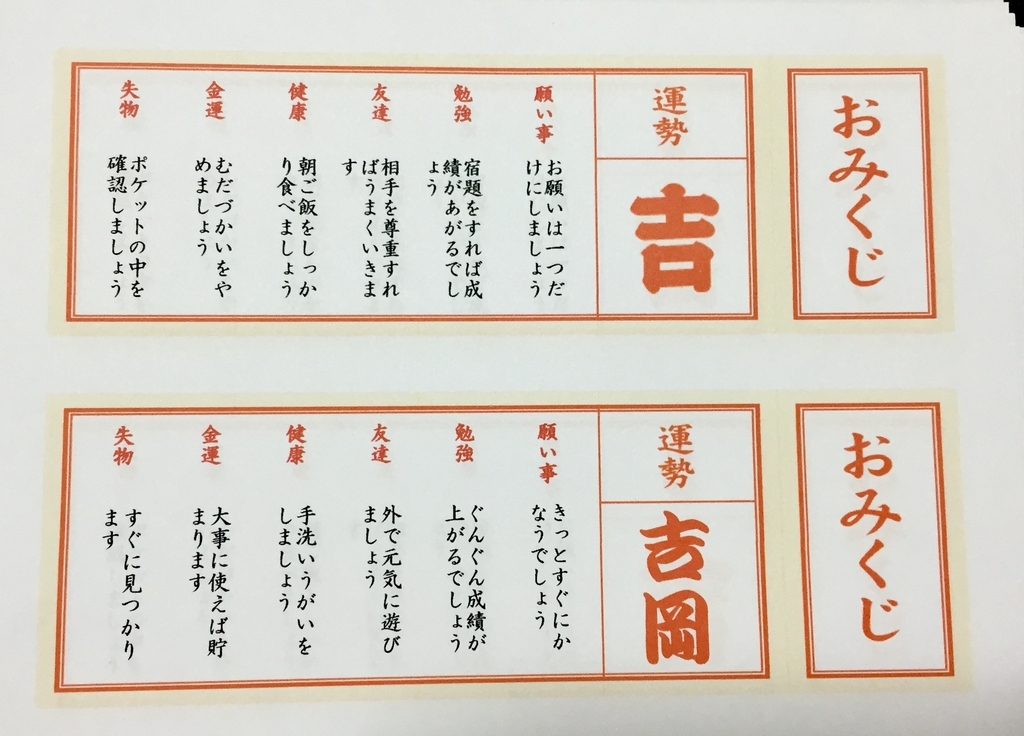 おみくじ
運勢
吉
願い事
お願いは一つだ
けにしましょう
勉強
宿題をすれば成
績があがるでし
ょう
友達
相手を尊重すれ
ばうまくいきま
す
健康
朝ご飯をしっか
り食べましょう
金運
むだづかいをや
めましょう
失物
ポケットの中を
確認しましょう
おみくじ
運勢
吉岡
願い事
きっとすぐにか
なうでしょう
勉強
ぐんぐん成績が
上がるでしょう
友達
外で元気に遊び
ましょう
健康
手洗いうがいを
しましょう
金運
大事に使えば貯
まります
失物
すぐに見つかり
ます